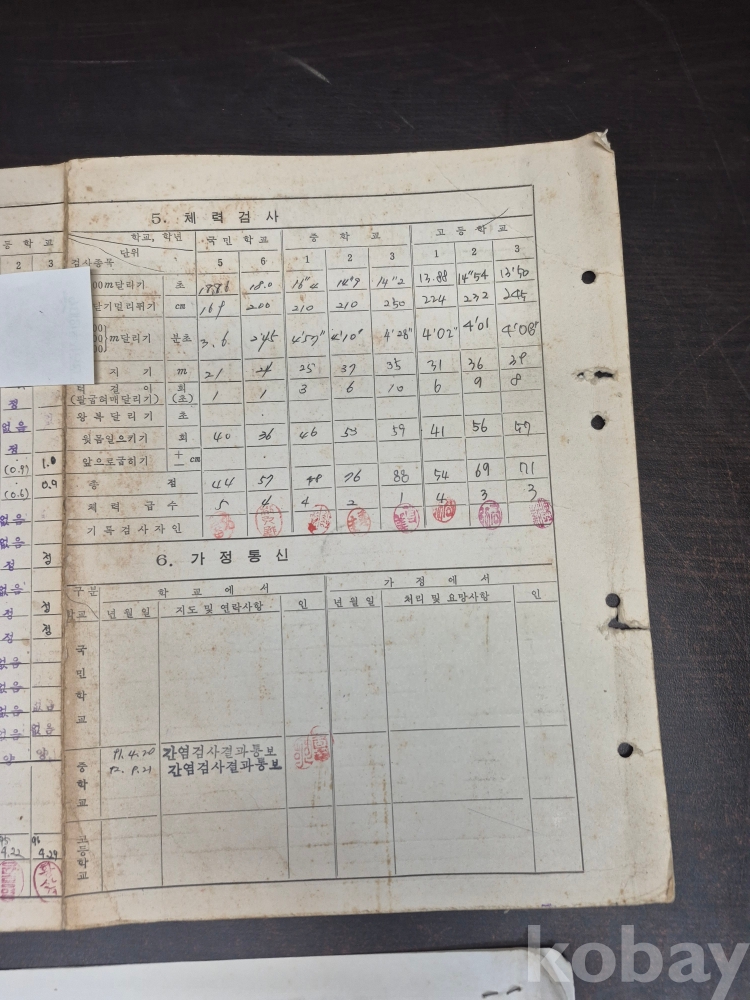 5. 체력검사
학교, 학년 국민학교 중학교 고등학교
단위
검사종목 5 6 1 2 3 1 2 3
00m달리기 초 18.0 14"9 14"2 13.88 14"54 13"50
멀리뛰기 cm 169 200 210 210 250 224 232 245
m달리기 분초 3.6 2'45 4'57" 4'10" 4'28" 4'02" 4'01 4'08"
지기 m 21 25 37 35 31 36 38
턱걸이 회
(팔굽혀매달리기) (초) 1 1 3 6 10 6 9 8
왕복달리기 초
윗몸일으키기 회 40 36 46 53 59 41 56 57
앞으로굽히기 + − cm
총점 44 57 76 88 54 69 71
체력급수 5 4 4 2 1 4 3 3
기록검사자인
6. 가정통신
구분 학교에서 가정에서
학교 년월일 지도 및 연락사항 인 년월일 처리 및 요망사항 인
국민학교
중학교
91.4.20 간염검사결과통보
92.9.21 간염검사결과통보
고등학교
등학교
2 3
점
없음
점
(0.9) 1.0
(0.6) 0.9
없음
없음
정 정
없음
정 정
정 정
없음
없음
없음 없음
없음 없음
양 양
95 96
4.22 4.29
kobay